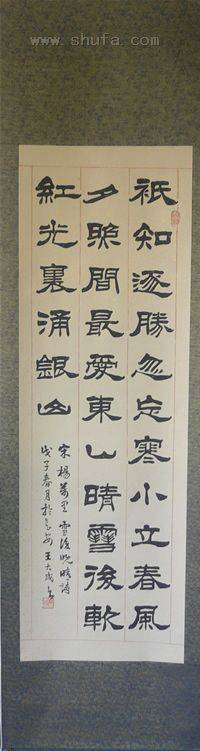 www.shufa.com
祇知逐勝忽忘寒小立春風
夕照間最愛東山晴雪後軟
紅光裏涌銀山
宋楊萬里雪後晚晴詩
戊子春月於安王大成